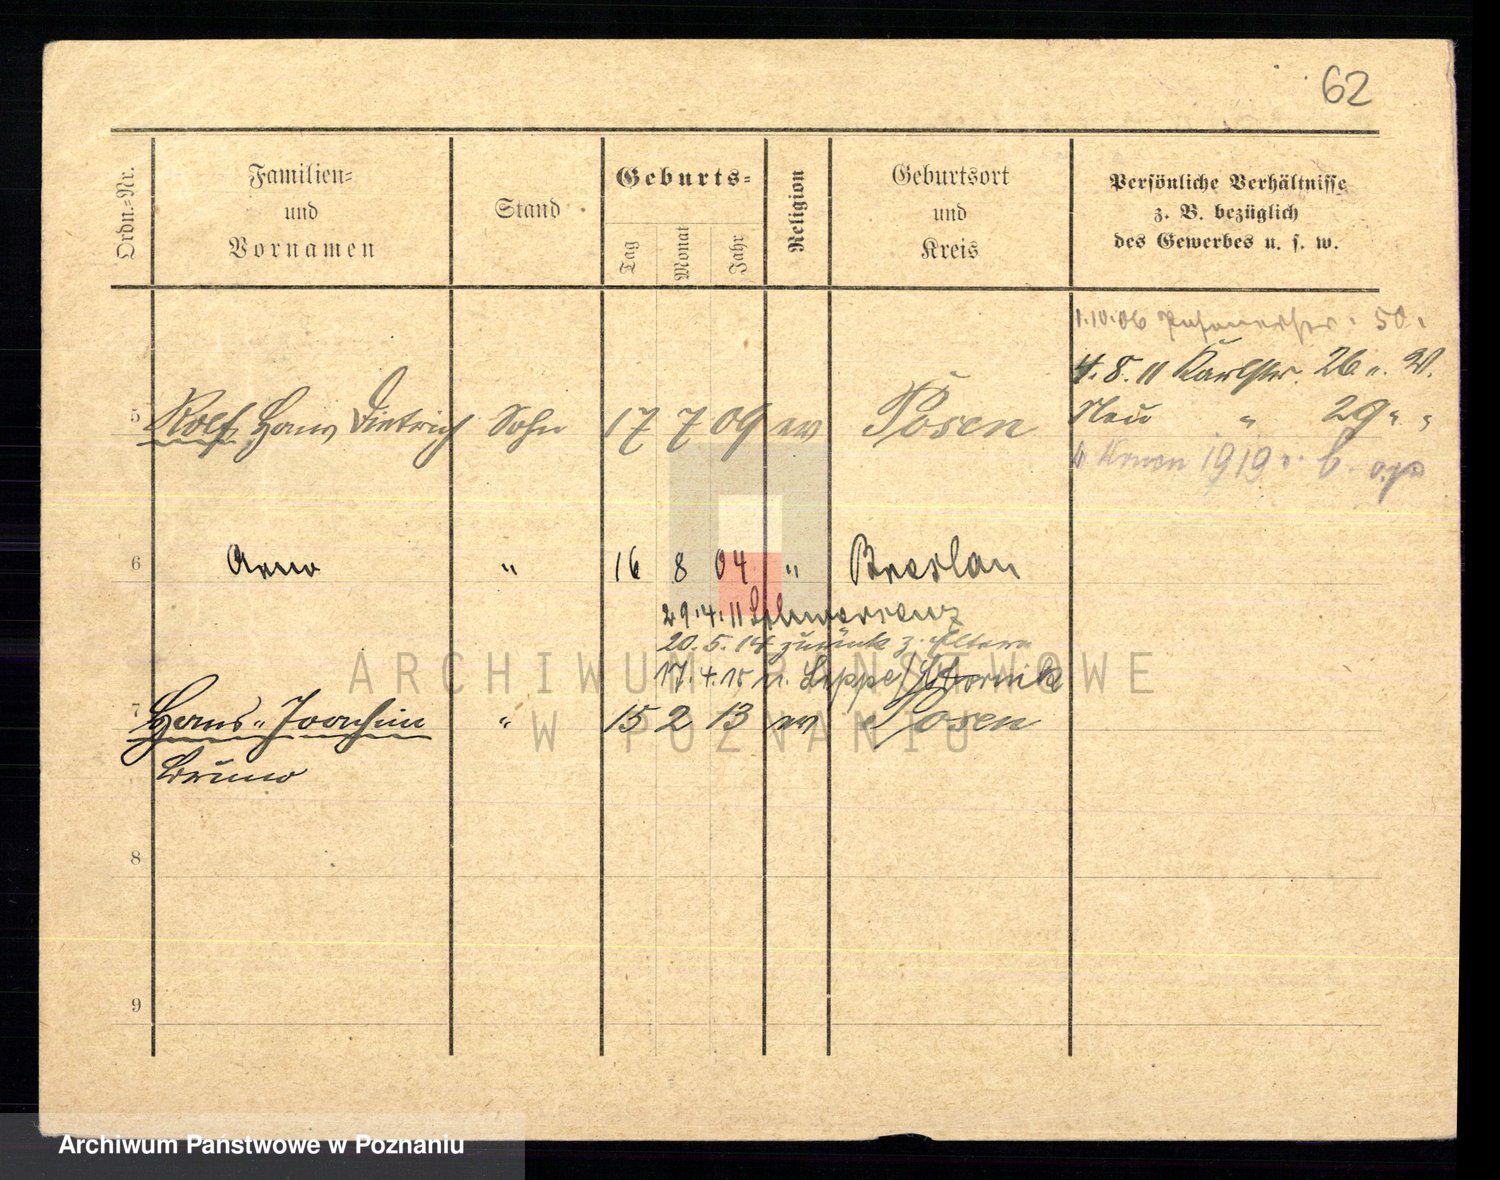 62
Ordn.-Nr.
Familien-
und
Vornamen
Stand
Geburts-
Tag
Monat
Jahr
Religion
Geburtsort
und
Kreis
Persönliche Verhältnisse
z. B. bezüglich
des Gewerbes u. s. w.
1.10.06 50.
4.8.11 Karlstr. 26 II. W.
5 Rolf Hans Dietrich Sohn 17 7 09 ev Posen
Neu " 29 " "
1919
6 Arno " 16 8 04 " Breslau
29.4.11 Schwersenz
20.5.14 zurück z. Eltern
17.4.15 n.
7 Hans-Joachim " 15 2 13 ev Posen
Bruno
8
9
ARCHIWUM PAŃSTWOWE
W POZNANIU
Archiwum Państwowe w Poznaniu